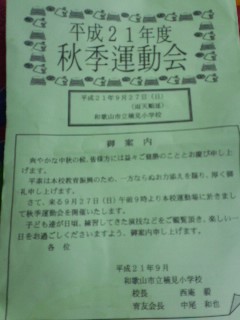 平成21年度
秋季運動会
平成21年9月27日(日)
(雨天順延)
和歌山市立楠見小学校
御案内
爽やかな中秋の候、皆様方には益々ご健勝のこととお慶び申し上
げます。
平素は本校教育振興のため、一方ならぬお力添えを賜り、厚く御
礼申し上げます。
さて、来る9月27日(日)午前9時より本校運動場に於きまし
て秋季運動会を開催いたします。
子ども達が日頃、練習してきた演技などをご観覧頂き、楽しい一
日をお過ごしくださいますよう、御案内申し上げます。
各位
平成21年9月
和歌山市立楠見小学校
校長 西庵
育友会長 中尾 和也